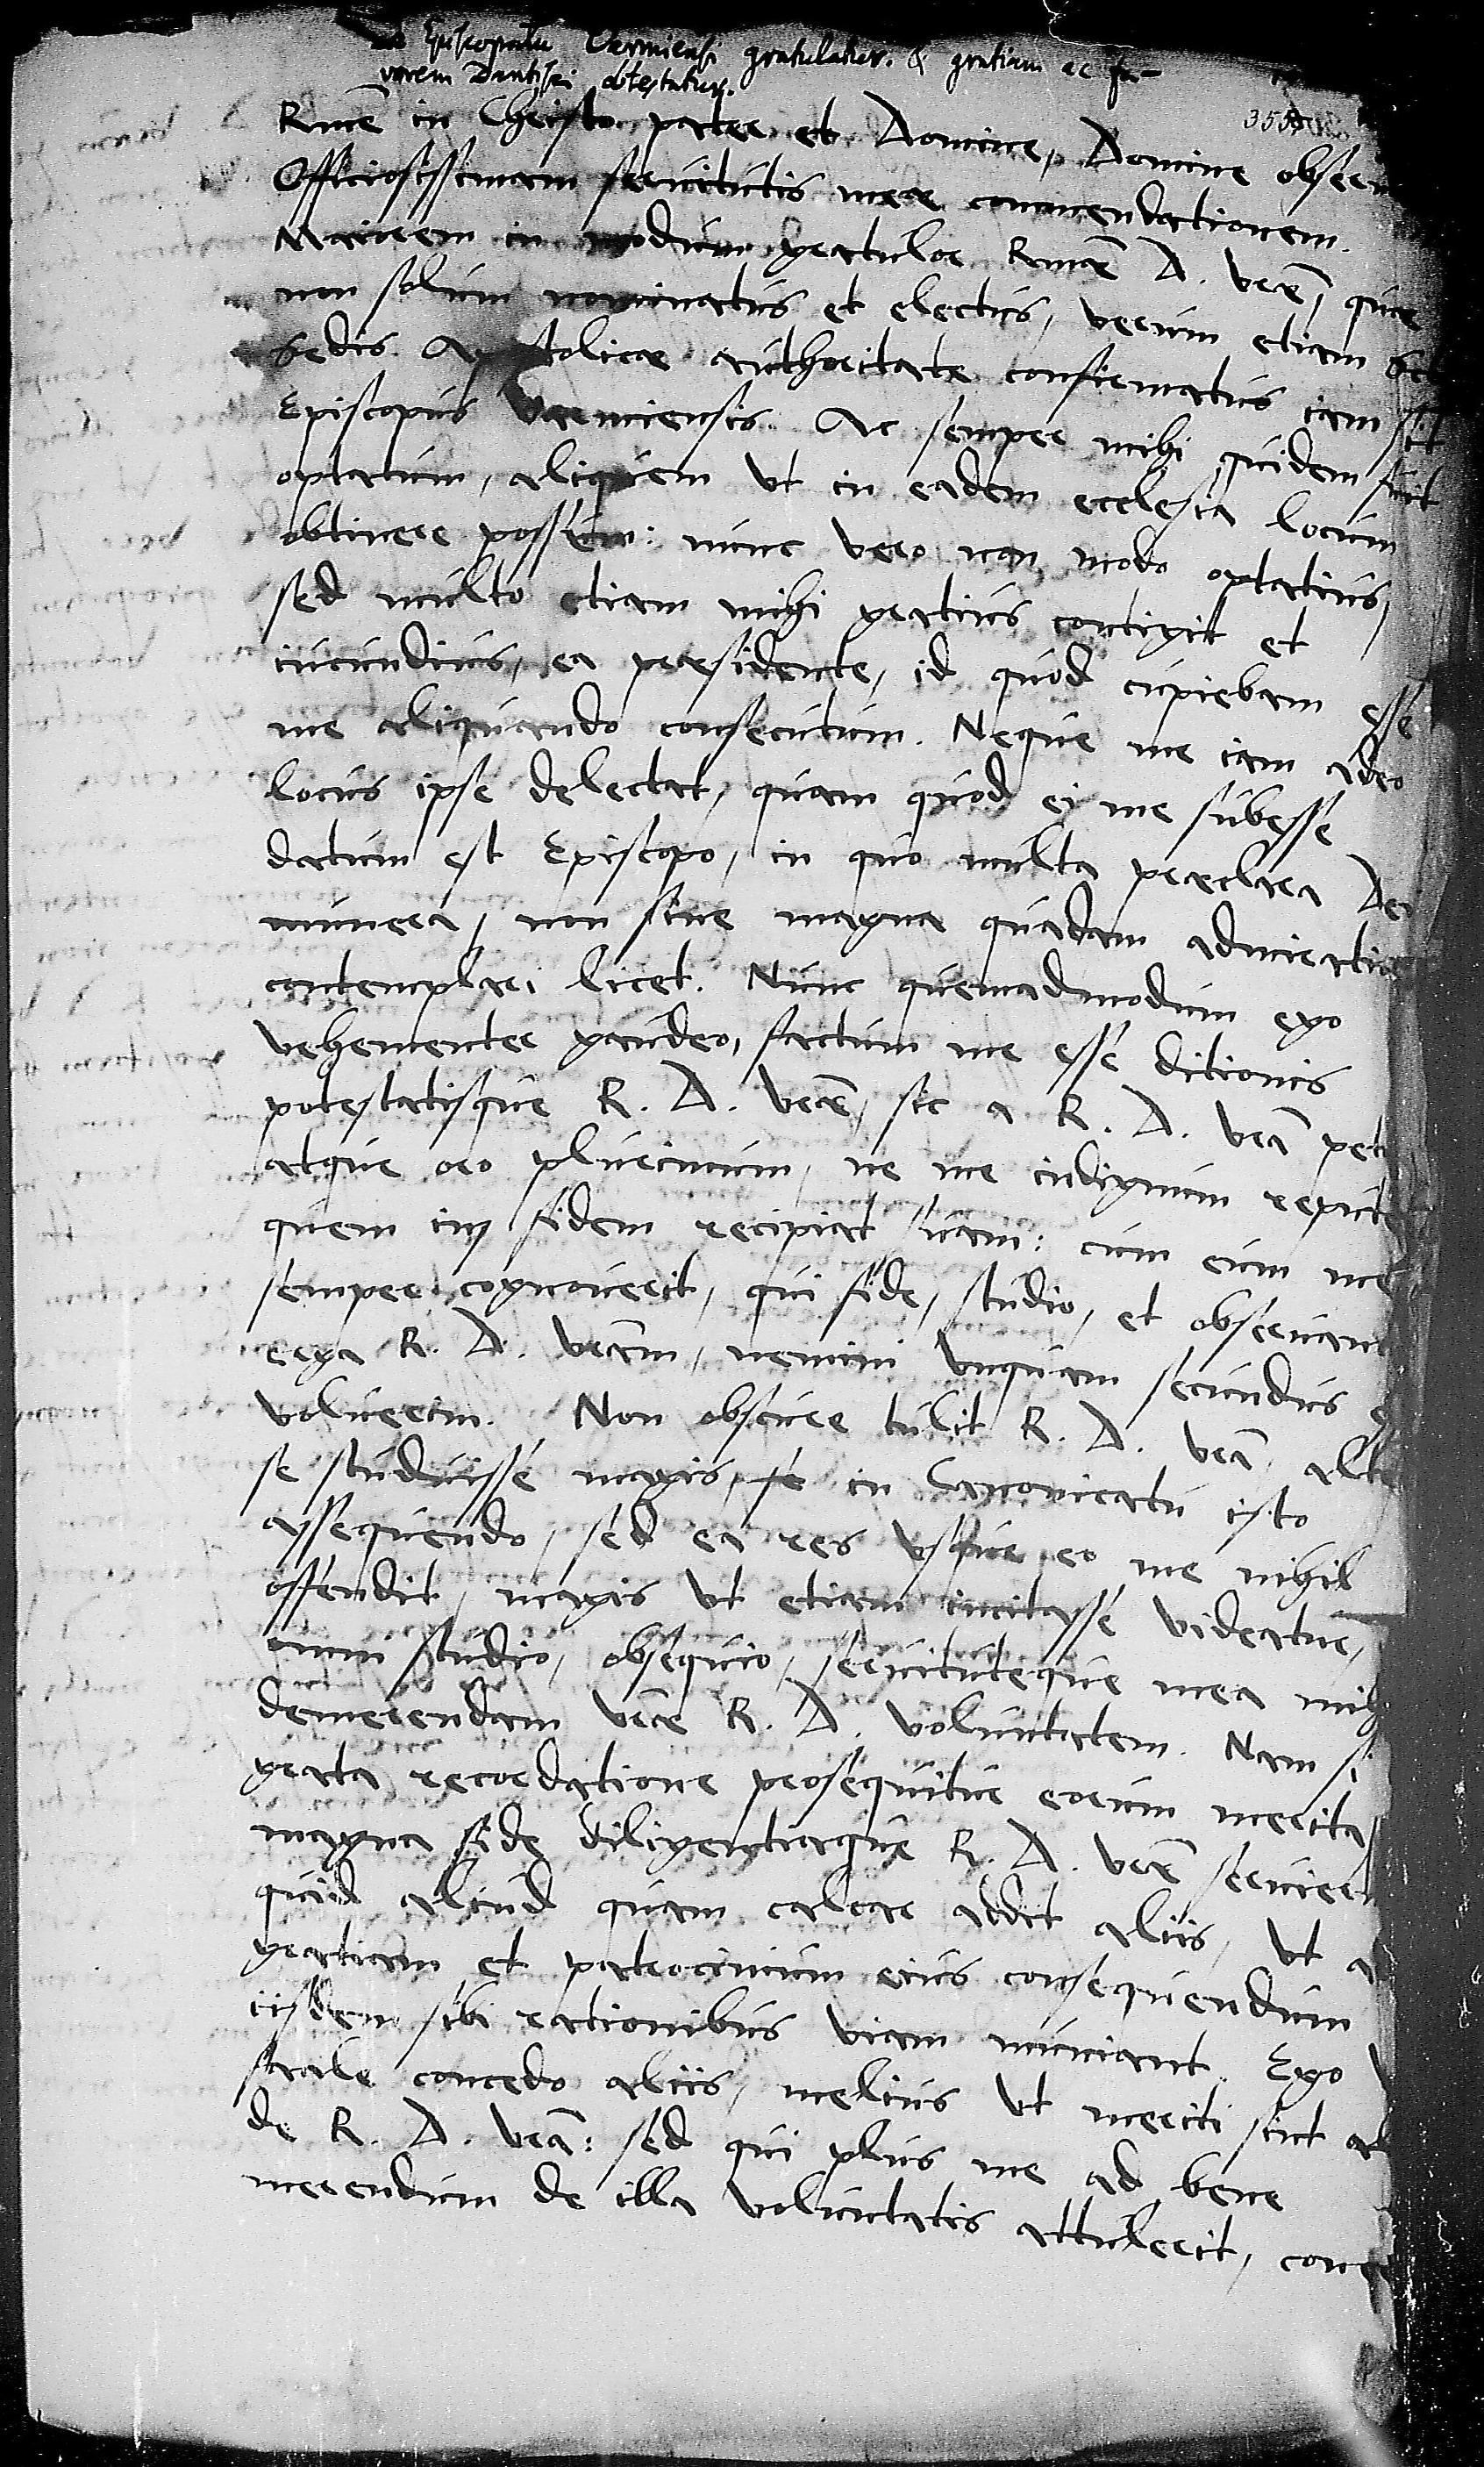 Episcopatu Varmiensi gratulatur. & gratiam ac fa-
vorem Dantisci
355
Rme in Christo pater et Domine, Domine obser
Officiosissimam seruitutis meae commendationem.
Maiorem in modum gratulor Rmae D. vrae, quae
non solum nominatus et electus, verum etiam
Sedis Apostolicae authoritate confirmatus iam sit
Episcopus Varmiensis. Ac semper mihi quidem fuit
optatum, aliquem vt in eadem ecclesia locum
obtinere possem: nunc vero non modo optatius,
sed multo etiam mihi gratius contigit et
iucundius, ea praesidente, id quod cupiebam esse
me aliquando consecutum. Neque me iam adeo
locus ipse delectat, quam quod ei me subesse
datum est Episcopo, in quo multa praeclara Dei
munera, non sine magna quadam admiratio
contemplari licet. Nunc quemadmodum ego
vehementer gaudeo, factum me esse ditionis
potestatisque R. D. vrae, sic a R. D. vra pet
atque oro plurimum, ne me indignum reputet
quem in fidem recipiat suam: cum eum me
semper cognouerit, qui fide, studio, et obseruant
erga R. D. vram, nemini vnquam secundus
voluerim. Non obscure tulit R. D. vra alte
se studuisse magis, se in Canonicatu isto
assequendo, sed ea res vsque eo me nihil
offendit, magis vt etiam incitasse videatur,
omni studio, obsequio, seruituteque mea mih
demerendam vrae R. D. voluntatem. Nam si
grata recordatione prosequitur eorum merita,
magna fide diligentiaque R. D. vrae seruier
quid aliud quam calcar addit aliis, vt a
gratiam et patrocinium eius consequendum
iisdem sibi rationibus viam muniant. Ego
facile concedo aliis, melius vt meriti sint
de R. D. vra: sed qui plus me ad bene
merendum de illa voluntatis attulerit, conce